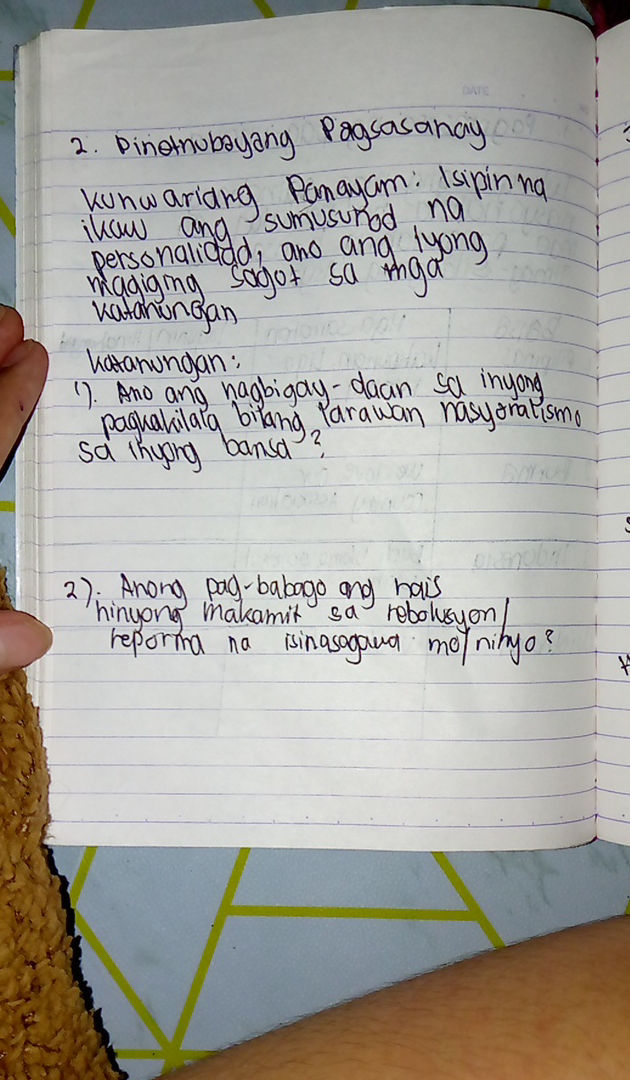 DATE
2. Pinatnubayang Pagsasanay
Kunwariang Panayam: Isipin na
ikaw ang sumusunod na
personalidad, ano ang iyong
magiging sagot sa mga
katanungan
Katanungan:
1). Ano ang nagbigay-daan sa inyong
pagkakilala bilang larawan nasyoralismo
sa inyong bansa?
2). Anong pag-babago ang nais
ninyong makamit sa rebolusyon/
reporma na isinasagawa mo/ninyo?